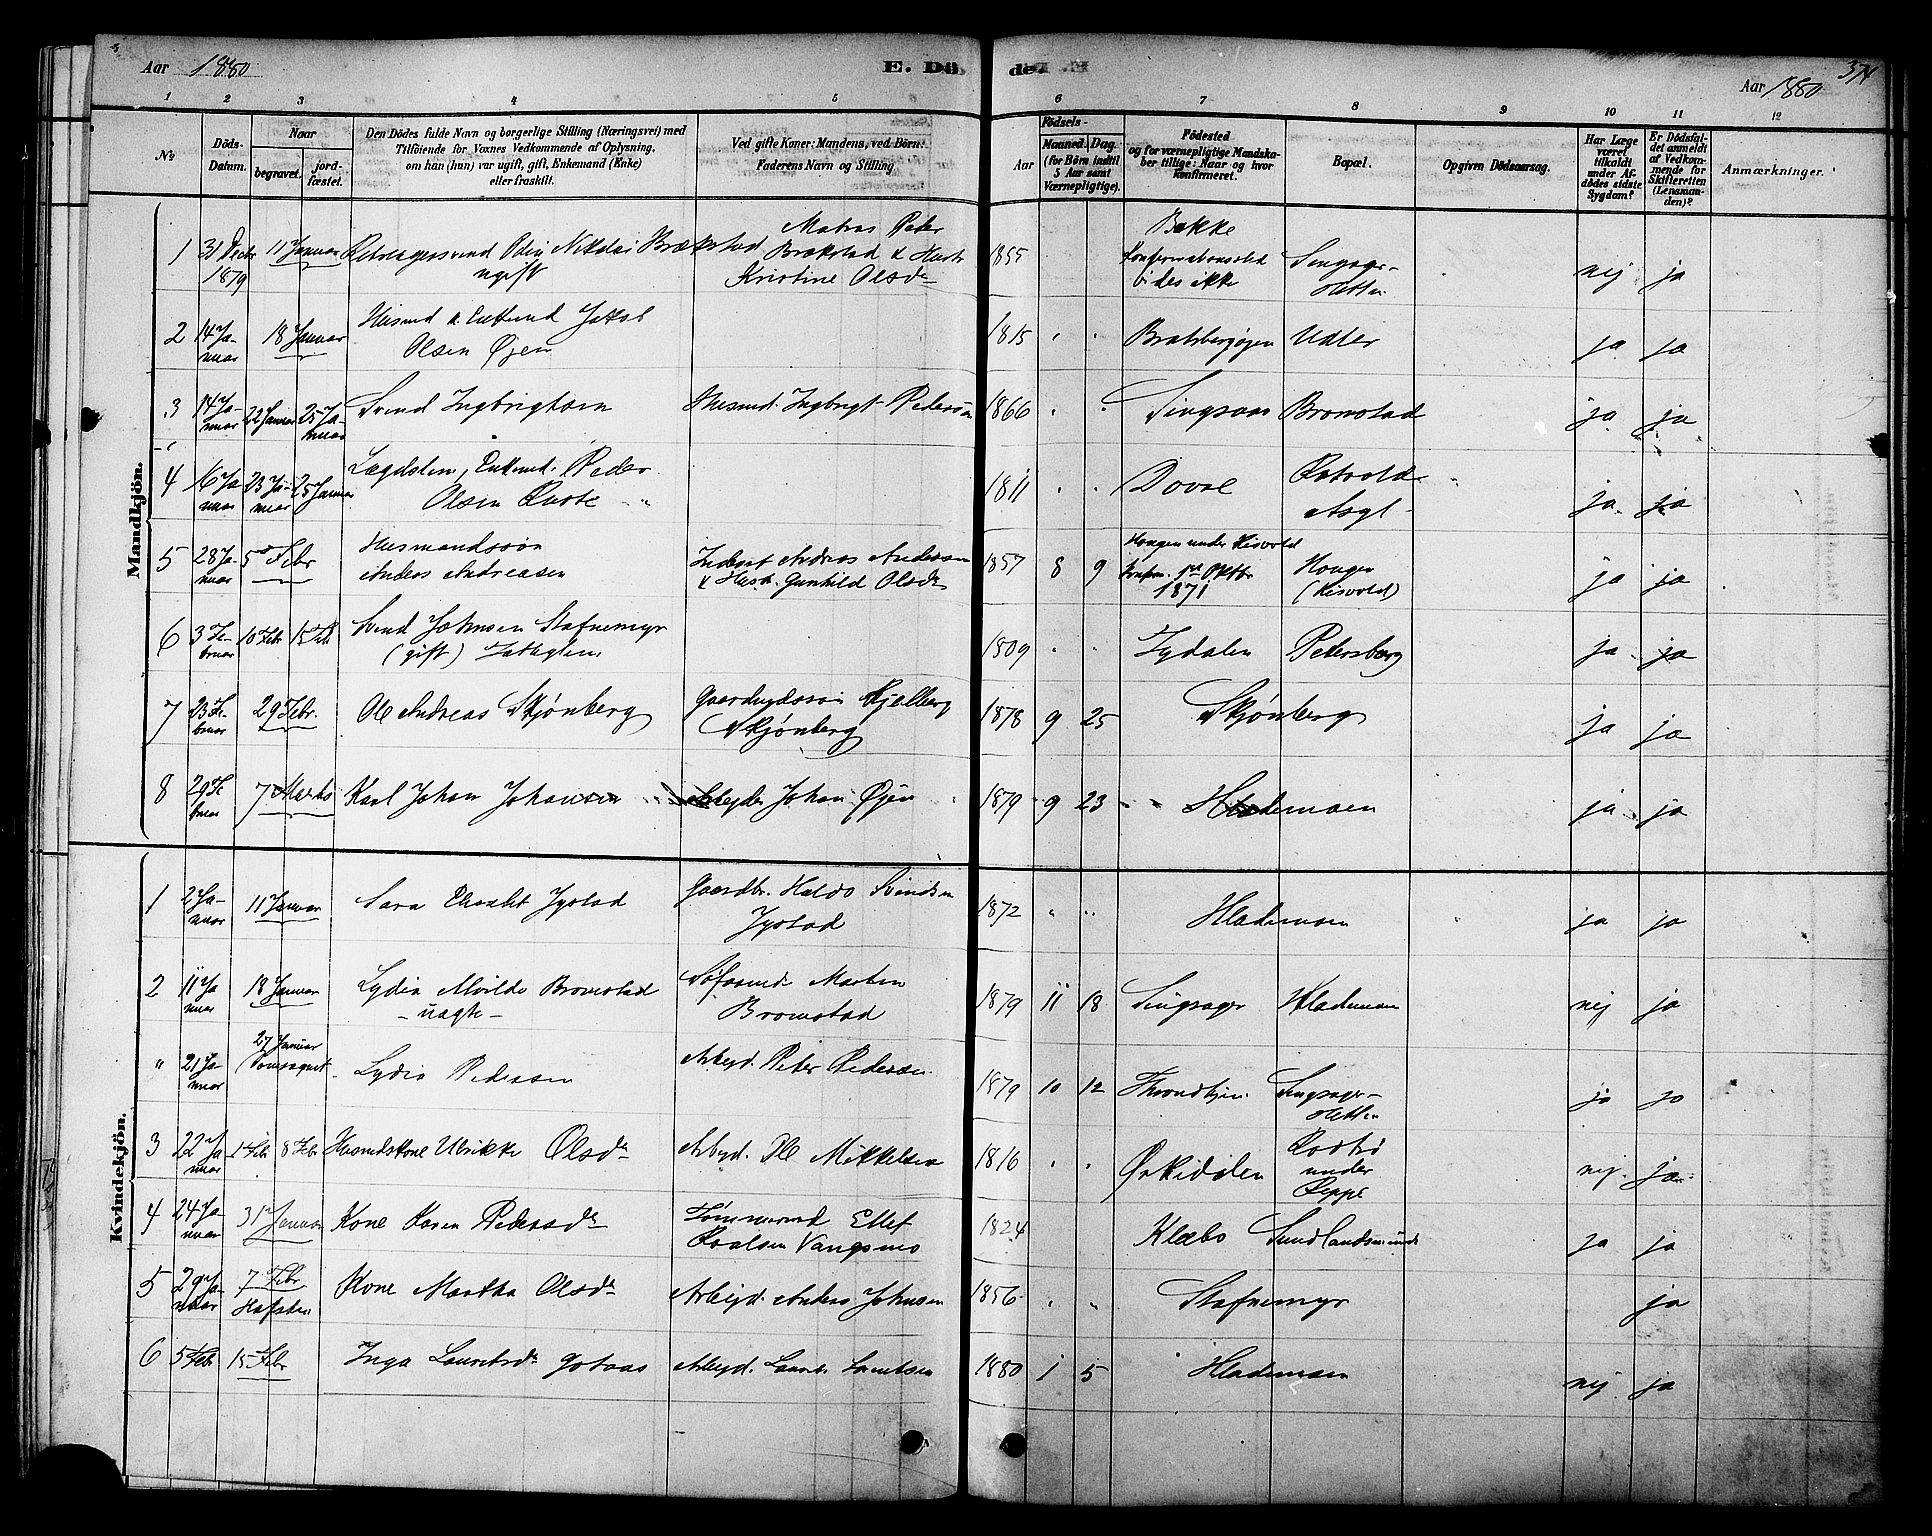 Aar 1880
E. Dö
de.
374
Aar 1880
1 2 3 4 5 6 7 8 9 10 11 12
No
Döds-Datum.
Naar
begravet.
jord-fæstet.
Den Dödes fulde Navn og borgerlige Stilling (Næringsvei) med
Tilföiende for Voxnes Vedkommende af Oplysning,
om han (hun) var ugift, gift, Enkemand (Enke)
eller fraskilt.
Ved gifte Koner: Mandens, ved Börn:
Faderens Navn og Stilling
Födsels-
Aar
Maaned. Dag.
(for Börn indtil
5 Aar samt
Værnepligtige).
Födested
og for værnepligtige Mandska-
ber tillige: Naar og hvor
konfirmeret.
Bopæl.
Opgiven Dödsaarsag.
Har Læge
været
tilkaldt
under Af-
dödes sidste
Sygdom?
Er Dödsfal-
det anmeldt
af Vedkom-
mende for
Skifteretten
(Lensman-
den)?
Anmærkninger.
Mandkjön.
1 31 Decbr 1879 11 Januar Nikolai Brækstad ugift Matros Peder Brækstad & Hustr Kristine Olsdr 1855 Bakke vides ikke Singsager- nej ja
2 14 Januar 18 Januar Husmd & Enkemd Jakob Olsen Øjen 1815 Bratsbergøjen Udler ja ja
3 14 Januar 22 Januar 25 Januar Svend Ingbrigtsen Husmd. Ingbrigt Pedersen 1866 Singsaas Bromstad ja ja
4 16 Januar 23 Januar 25 Januar Lægdslem, Enkemd. Peder Olsen 1811 Dovre Rotvold Asyl ja ja
5 28 Januar 5 Febr Husmandssøn Anders Andreasen Inderst Andreas Andersen & Hustr. Gunhild Olsdr 1857 8 9 Haugen under Risvold Konfirm. 1st Oktbr 1871 Haugen (Risvold) ja ja
6 3 Februar 10 Febr 15 Feb Svend Johnsen Stafnemyr (gift) Fattiglem 1809 Tydalen Petersborg ja ja
7 23 Februar 29 Febr. Ole Andreas Skjønberg Gaardbrydssøn Kjelberg Skjønberg 1878 9 25 Skjønberg ja ja
8 29 Februar 7 Marts Karl Johan Johansen Arbeyder Johan Øjen 1879 9 23 Hlademoen ja ja
Kvindekjön.
1 2 Januar 11 Januar Sara Elisabet Jystad Gaardbr. Haldo Svendsen Jystad 1872 Hlademoen ja ja
2 11 Januar 18 Januar Lydia Alvilde Bromstad - uægte - Martin Bromstad 1879 11 18 Singsager Hlademoen nej ja
" 21 Januar 27 Januar Lydia Pedersen Arbeyd. Peter Pedersen 1879 10 12 Throndhjem Singsager- ja ja
3 22 Januar 1 Febr 8 Febr Husmdskone Ulrikke Olsdr Arbeyd. Ole Mikkelsen 1816 Ørkedalen under Reppe nej ja
4 24 Januar 31 Januar Kone Karen Pedersdr Tømmermd Ellef Paalsen Vangsmo 1824 Klæbo Sundlandsminde ja ja
5 29 Januar 7 Febr Kone Martha Olsdr Arbeyd. Anders Johnsen 1856 Stafnemyr ja
6 5 Feb 15 Febr Inga Lauritsdr Gotaas Arbeyd. Laurits Lauritsen 1880 1 5 Hlademoen nej ja